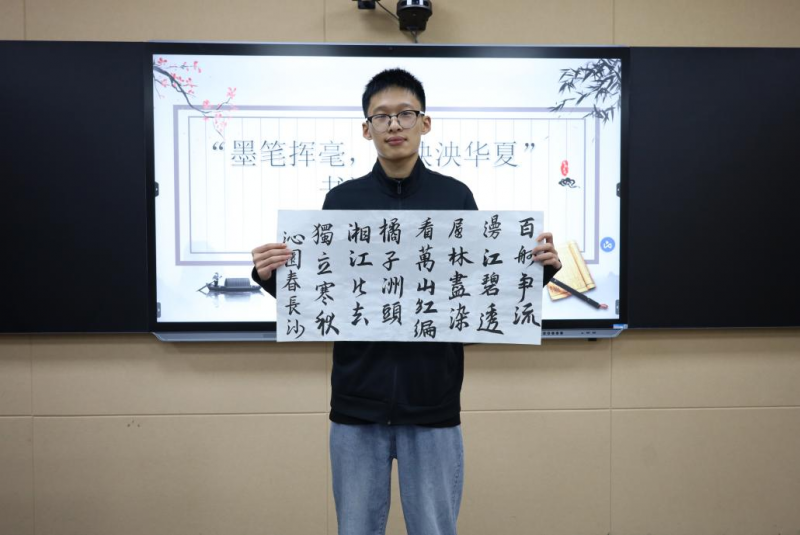 “墨笔挥毫，泱华夏”
书
沁園春長沙
獨立寒秋
湘江北去
橘子洲頭
看萬山红遍
層林盡染
漫江碧透
百舸争流